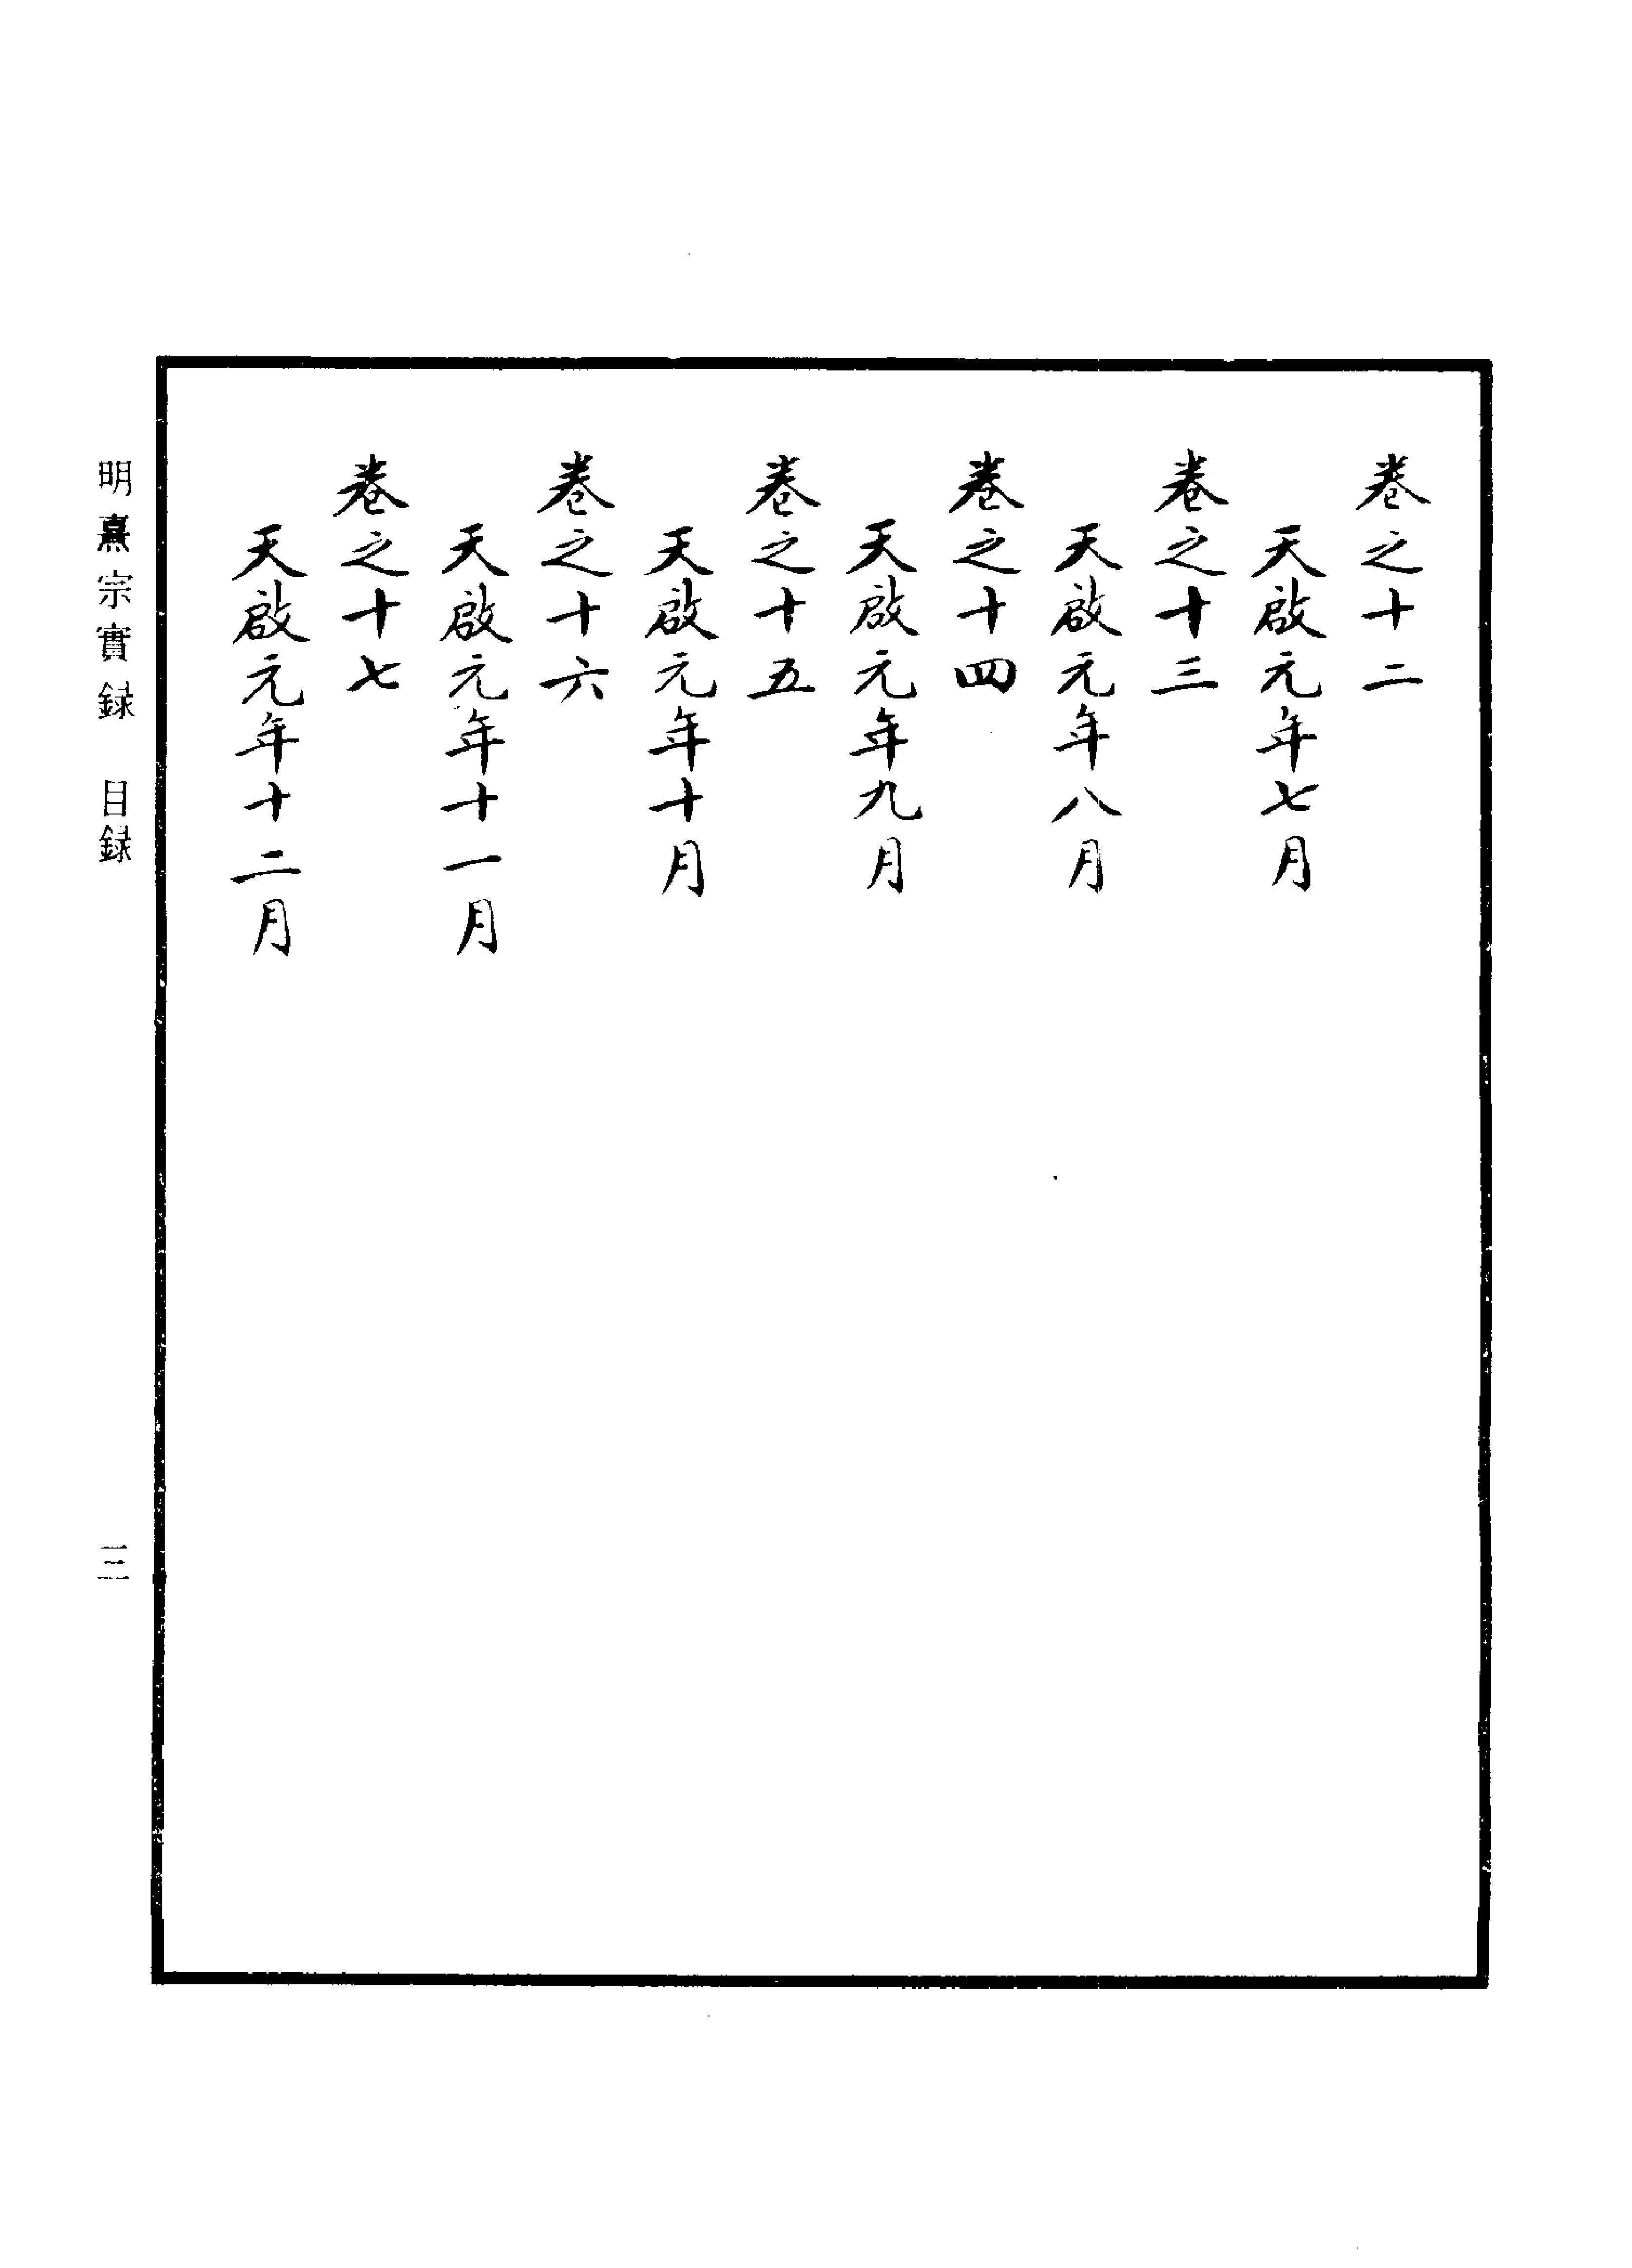 卷之十二
天啟元年七月
卷之十三
天啟元年八月
卷之十四
天啟元年九月
卷之十五
天啟元年十月
卷之十六
天啟元年十一月
卷之十七
天啟元年十二月
明熹宗實録 目録
三